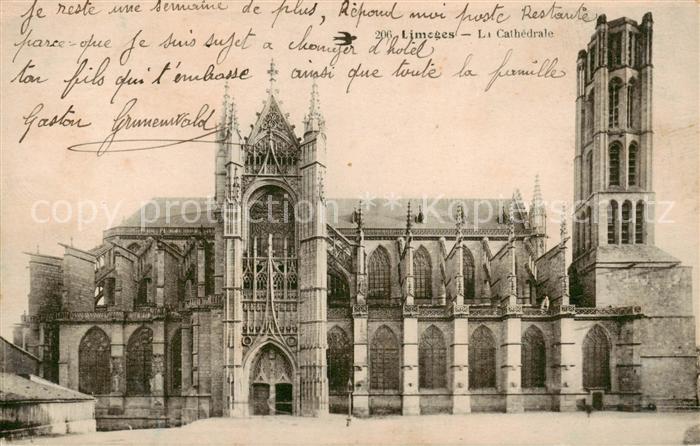 je reste une semaine de plus, Répond moi poste Restante
parce-que Je suis sujet a changer d'hôtel
206 Limoges – La Cathédrale
ton fils qui t'embrasse ainsi que toute la famille
Gaston Grunenwald
copyright-ansichtskarten-expert